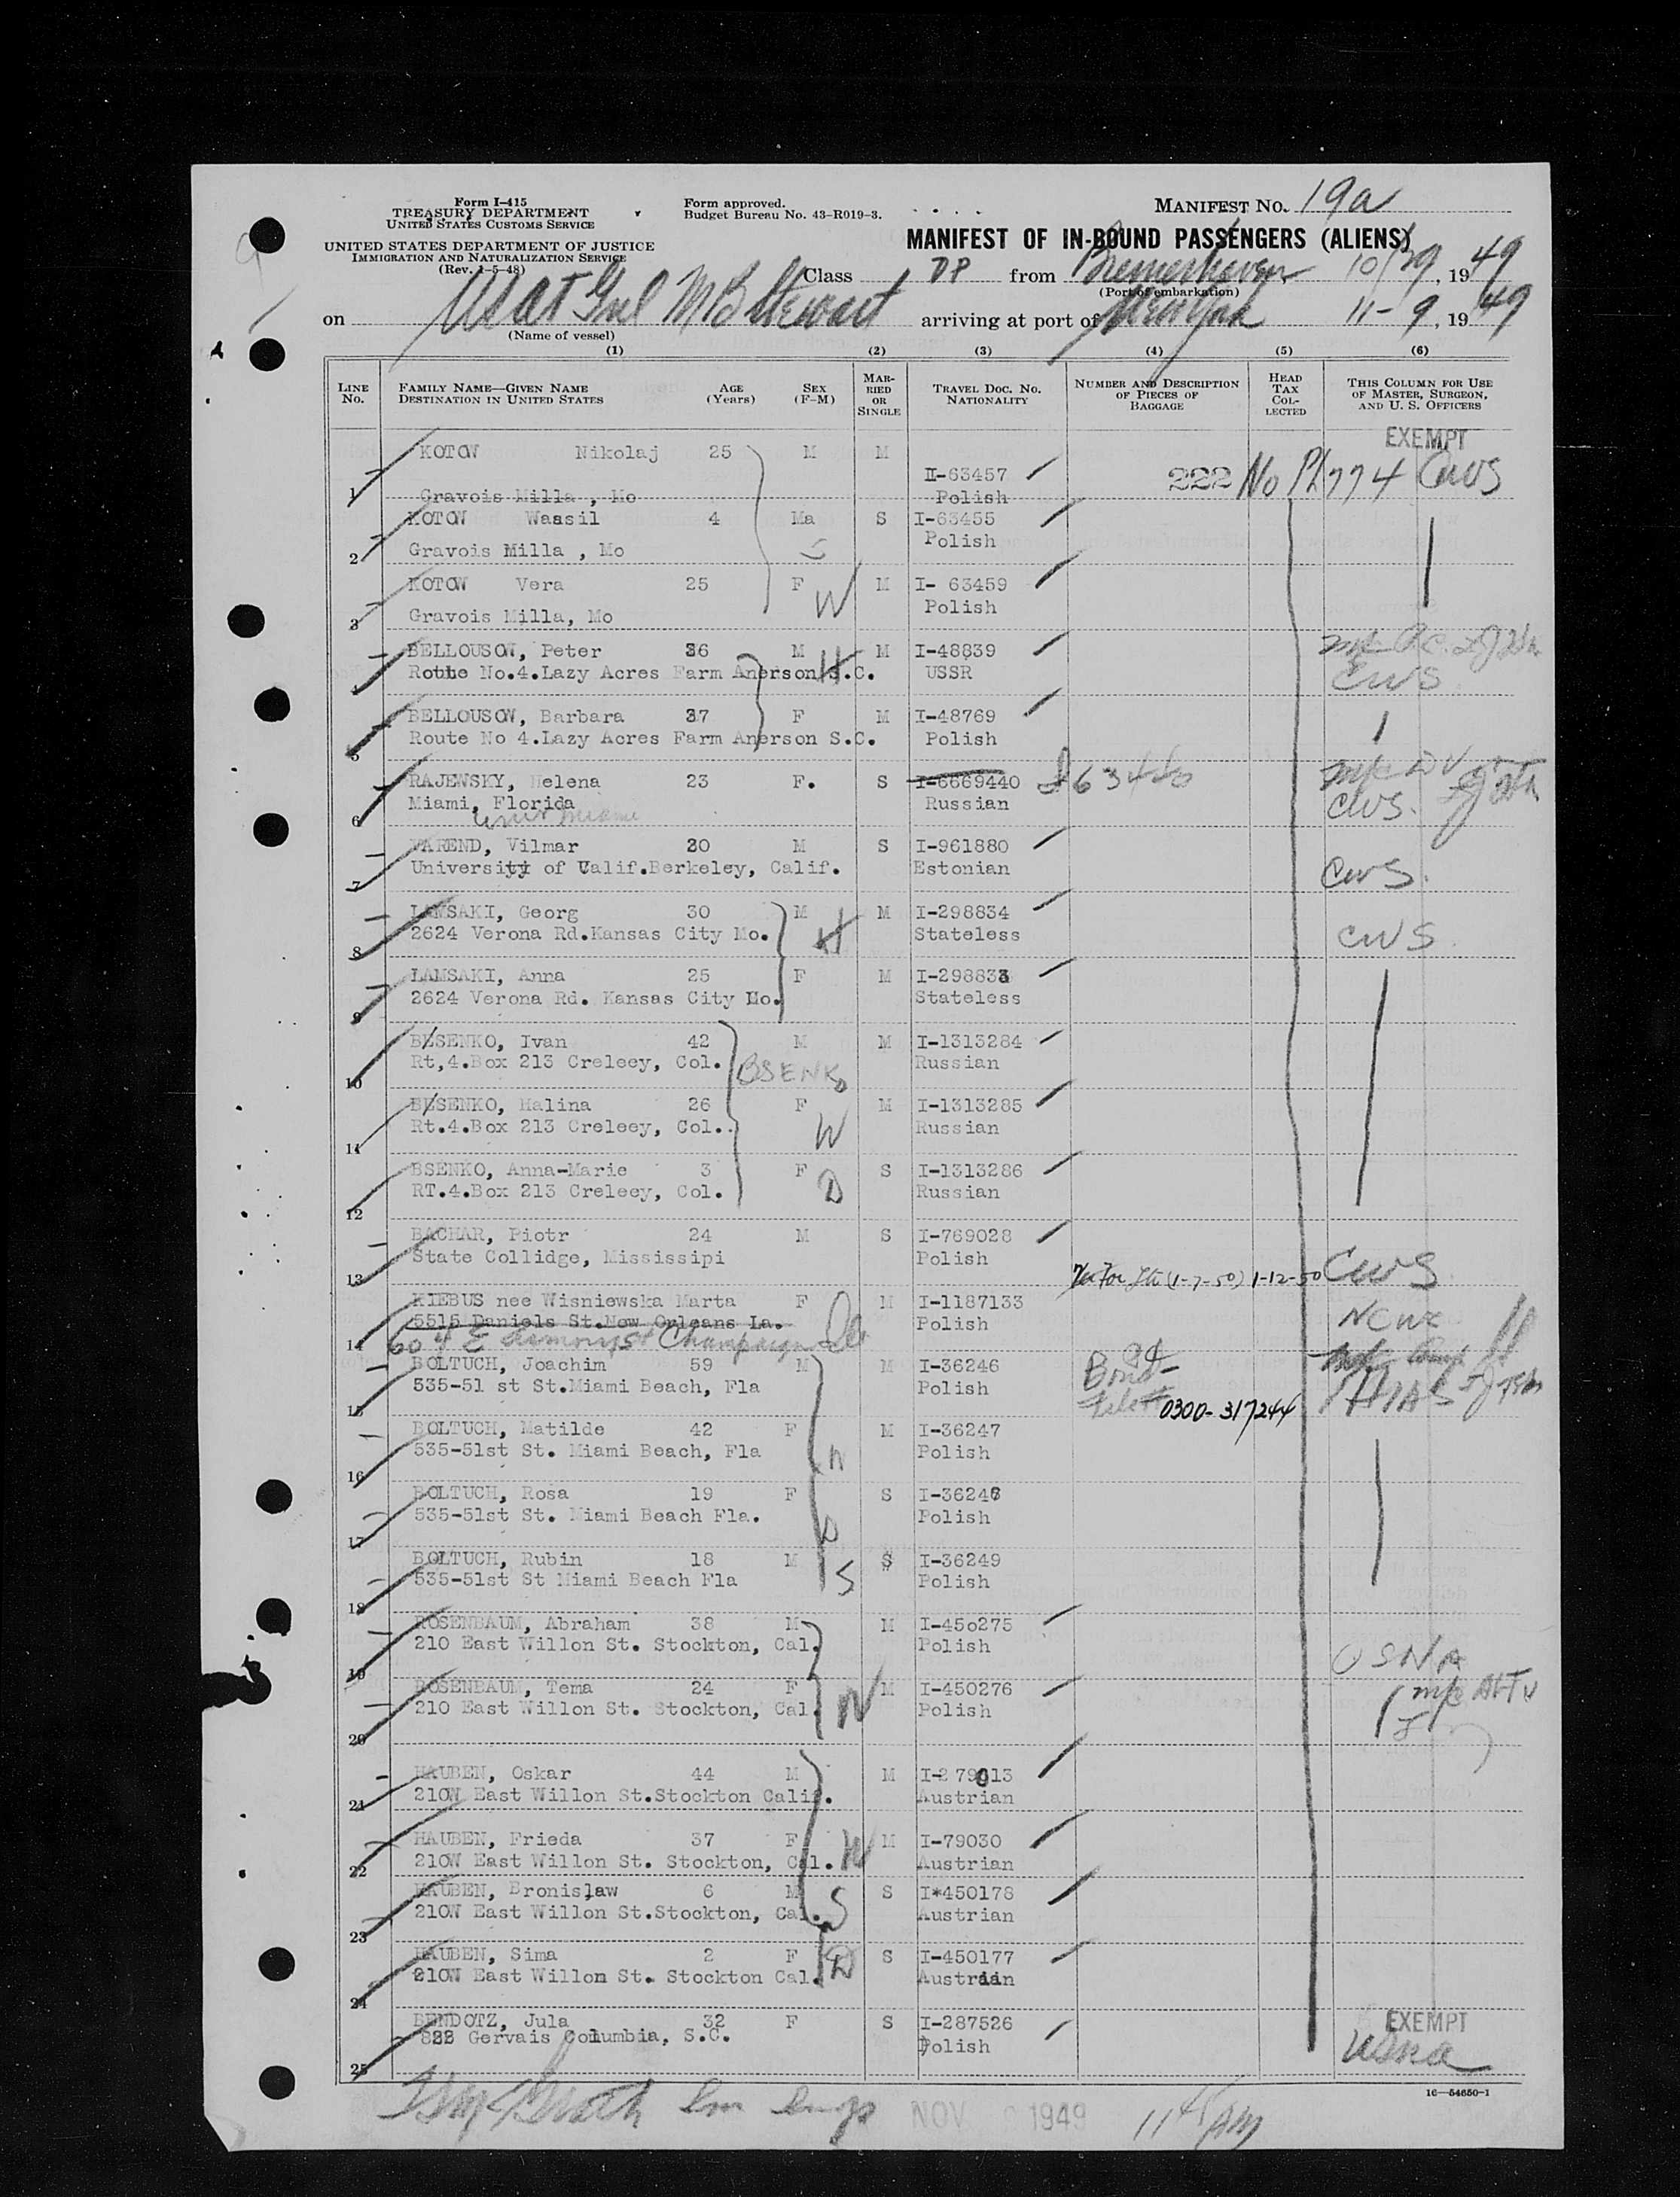 Form I-415
TREASURY DEPARTMENT
UNITED STATES CUSTOMS SERVICE
UNITED STATES DEPARTMENT OF JUSTICE
IMMIGRATION AND NATURALIZATION SERVICE
(Rev. 1-5-48)
Form approved.
Budget Bureau No. 43-R019-3.
MANIFEST NO. 19a
MANIFEST OF IN-BOUND PASSENGERS (ALIENS)
Class DP from Bremerhaven, 10/29, 1949
(Port of embarkation)
on USAT Gnl M B Stewart arriving at port of New York 11-9, 1949
(Name of vessel)
(1) (2) (3) (4) (5) (6)
LINE No. FAMILY NAME—GIVEN NAME DESTINATION IN UNITED STATES AGE (Years) SEX (F-M) MARRIED OR SINGLE TRAVEL DOC. NO. NATIONALITY NUMBER AND DESCRIPTION OF PIECES OF BAGGAGE HEAD TAX COLLECTED THIS COLUMN FOR USE OF MASTER, SURGEON, AND U. S. OFFICERS
EXEMPT
KOTOW Nikolaj 25 M M
II-63457 222 No CWS
1 Gravois Milla , Mo Polish
KOTOW Wassil 4 Ma S I-63455
2 Gravois Milla , Mo S Polish
KOTOW Vera 25 F W M I- 63459
3 Gravois Milla, Mo Polish
BELLOUSOW, Peter 36 M M I-48839
4 Route No.4.Lazy Acres Farm Anerson S.C. H USSR CWS
BELLOUSOW, Barbara 37 F M I-48769
5 Route No 4.Lazy Acres Farm Anerson S.C. Polish
RAJEWSKY, Helena 23 F. S I-6669440
6 Miami, Florida Russian CWS.
VAREND, Vilmar 20 M S I-961880
7 University of Calif.Berkeley, Calif. Estonian CWS.
LAMSAKI, Georg 30 M M I-298834
8 2624 Verona Rd.Kansas City Mo. H Stateless CWS
LAMSAKI, Anna 25 F M I-298833
9 2624 Verona Rd. Kansas City Mo. Stateless
BESENKO, Ivan 42 M M I-1313284
10 Rt,4.Box 213 Creleey, Col. BSENKO Russian
BESENKO, Halina 26 F M I-1313285
11 Rt.4.Box 213 Creleey, Col.. W Russian
BSENKO, Anna-Marie 3 F S I-1313286
12 RT.4.Box 213 Creleey, Col. D Russian
BACHAR, Piotr 24 M S I-769028
13 State Collidge, Mississipi Polish (1-7-50) 1-12-50 CWS
KIEBUS nee Wisniewska Marta F M I-1187133
5515 Daniels St.New Orleans La. Polish NCWC
14 604 E Champaign Ill
BOLTUCH, Joachim 59 M M I-36246 Bond
15 535-51 st St.Miami Beach, Fla Polish 0300-317244 HIAS
BOLTUCH, Matilde 42 F M I-36247
16 535-51st St. Miami Beach, Fla W Polish
BOLTUCH, Rosa 19 F S I-36248
17 535-51st St. Miami Beach Fla. D Polish
BOLTUCH, Rubin 18 M S I-36249
18 535-51st St Miami Beach Fla S Polish
ROSENBAUM, Abraham 38 M M I-45o275
19 210 East Willon St. Stockton, Cal. Polish USNA
ROSENBAUM, Tema 24 F M I-450276
20 210 East Willon St. Stockton, Cal. W Polish
HAUBEN, Oskar 44 M M I-279013
21 210W East Willon St.Stockton Calif. Austrian
HAUBEN, Frieda 37 F M I-79030
22 210W East Willon St. Stockton, Cal. W Austrian
HAUBEN, Bronislaw 6 M S I*450178
23 210W East Willon St.Stockton, Cal. S Austrian
HAUBEN, Sima 2 F S I-450177
24 210W East Willon St. Stockton Cal. D Austrian
BENDOTZ, Jula 32 F S I-287526 EXEMPT
25 823 Gervais Columbia, S.C. Polish USNA
16—54650-1
NOV 1949 11 AM